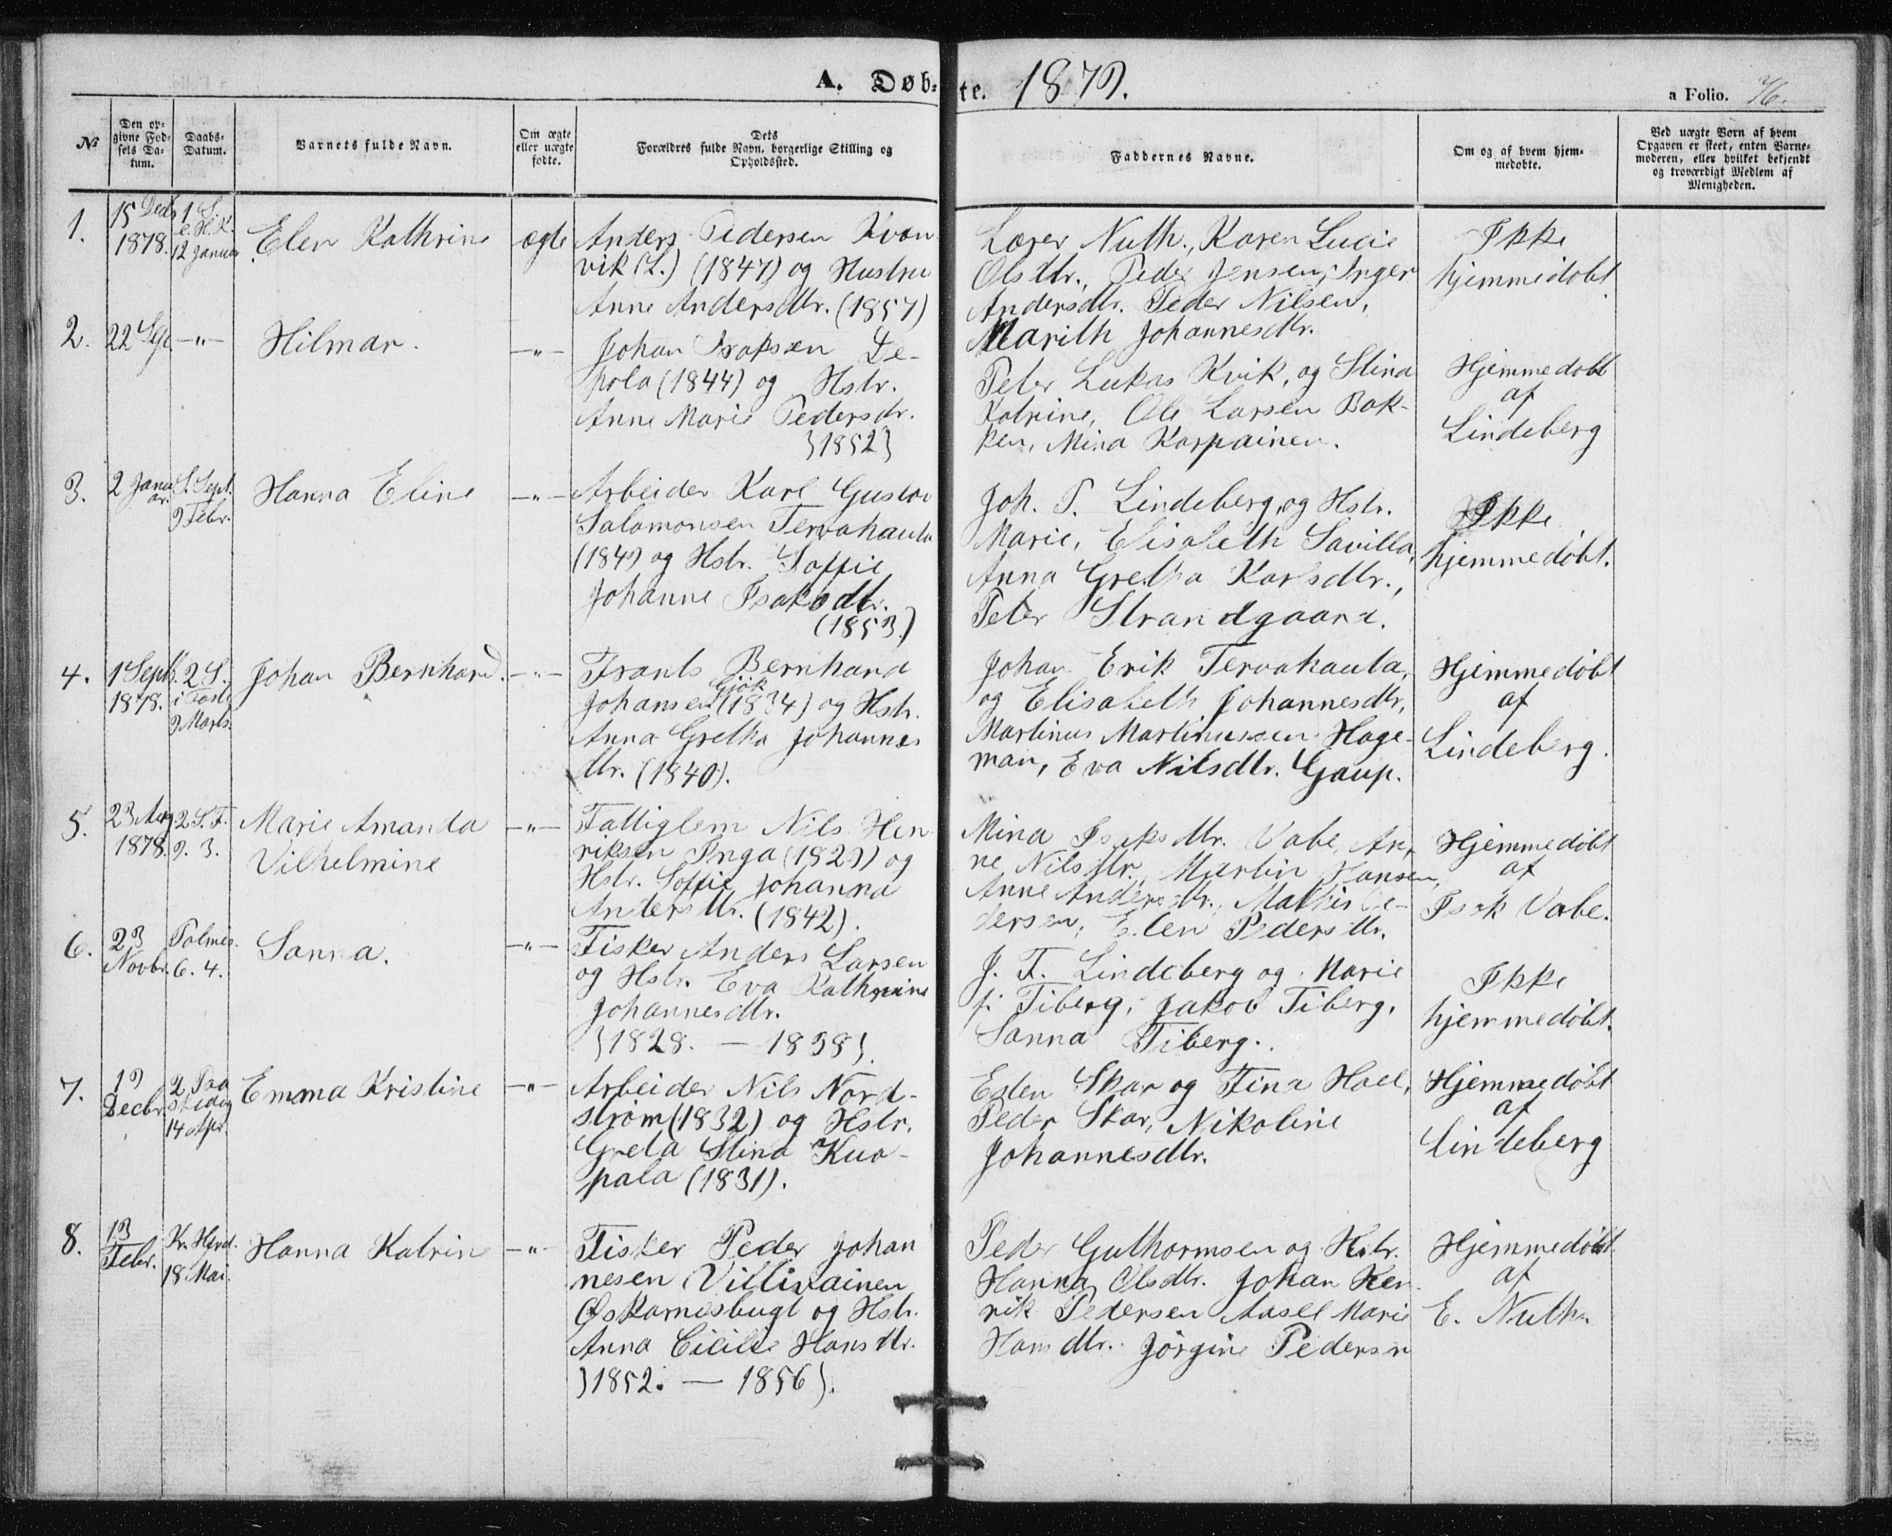 A. Døbte. 1879.
a Folio. 76.
№
Den opgivne Fødsels Datum.
Daabs-Datum.
Barnets fulde Navn.
Om ægte eller uægte fødte.
Dets Forældres fulde Navn, borgerlige Stilling og Opholdssted.
Faddernes Navne.
Om og af hvem hjemmedøbte.
Ved uægte Børn af hvem Opgaven er skeet, enten Barnemoderen, eller hvilket bekjendt og troværdigt Medlem af Menigheden.
1.
15 Decb
1878.
1 S.
e. H. K.
12 Januar
Elen Kathrine
ægte
Anders Pedersen Kvæn
vik (L.) (1847) og Hustru
Anne Andersdtr. (1857)
Lærer Nuth., Karen Lucie
Olsdtr., Peder Jensen, Inger
Andersdtr. Peder Nilsen,
Marith Johannesdtr.
Ikke
hjemmedøbt
2.
22 Sep
—"—
Hilmar.
—"—
Johan Isaksen Le-
pola (1844) og Hstr.
Anne Marie Pedersdr.
}1852}
Peter Lukas Kvik, og Stina
Katrine, Ole Larsen Bak-
ken, Mina Karpainen.
Hjemmedøbt
af
Lindeberg
3.
2 Janu
ar.
S. Sept.
9 Febr.
Hanna Eline
—"—
Arbeider Karl Gustav
Salamonsen Tervahauta
(1849 og Hstr. Soffie
Johanne Isaksdtr.
(1853.)
Joh. T. Lindeberg, og Hstr.
Marie, Elisabeth Savilla,
Anna Gretha Karlsdtr.,
Peter Strandgaard.
Ikke
hjemmedøbt.
4.
1 Septb.
1878.
2 S.
i Faste
9 Marts.
Johan Bernhard.
—"—
Frants Bernhard
Gjøk
Johansen (1834) og Hstr.
Anna Gretha Johannes
dtr. (1840).
Johan Erik Tervahauta,
og Elisabeth Johannesdtr,
Martinus Martinussen Hage-
man, Eva Nilsdtr. Gaup.
Hjemmedøbt
af
Lindeberg.
5.
23 Aug
1878.
2 S. F.
9. 3.
Marie Amanda
Vilhelmine
—"—
Fattiglem Nils Hen
riksen Inga (1829) og
Hstr. Soffie Johanna
Andersdtr. (1842).
Mina Isaksdtr. Vabe, An-
ne Nilsdtr., Martin Hansen,
Anne Andersdtr., Mathis Pe-
dersen, Elen Pedersdtr.
Hjemmedøbt
af
Isak Vabe.
6.
23
Novbr.
Palmes.
6. 4.
Sanna.
—"—
Fisker Anders Larsen
og Hstr. Eva Kathrine
Johannesdtr.
}1828. — 1838}.
J. T. Lindeberg og Marie
f. Tiberg, Jakob Tiberg,
Sanna Tiberg.
Ikke
hjemmedøbt.
7.
19
Decbr.
2 Paa
skedag
14 Apr.
Emma Kristine
—"—
Arbeider Nils Nord-
strøm (1832) og Hstr.
Greta Stina Kuo-
pala (1831).
Esten Skar og Fina Hoel,
Peder Skar, Nikoline
Johannesdtr.
Hjemmedøbt
af
Lindeberg
8.
13
Febr.
Kr. Hvd.
18 Mai.
Hanna Katrine
—"—
Fisker Peder Johan
nesen Villivainen
Oskarnesbugt og Hstr.
Anna Cicilie Hansdtr.
}1852. — 1856}.
Peder Guthormsen og Hstr.
Hanna Olsdtr. Johan Hen
rik Pedersen Aasel Marie
Hansdtr. Jørgine Pedersn
Hjemmedøbt
af
E. Nuth.